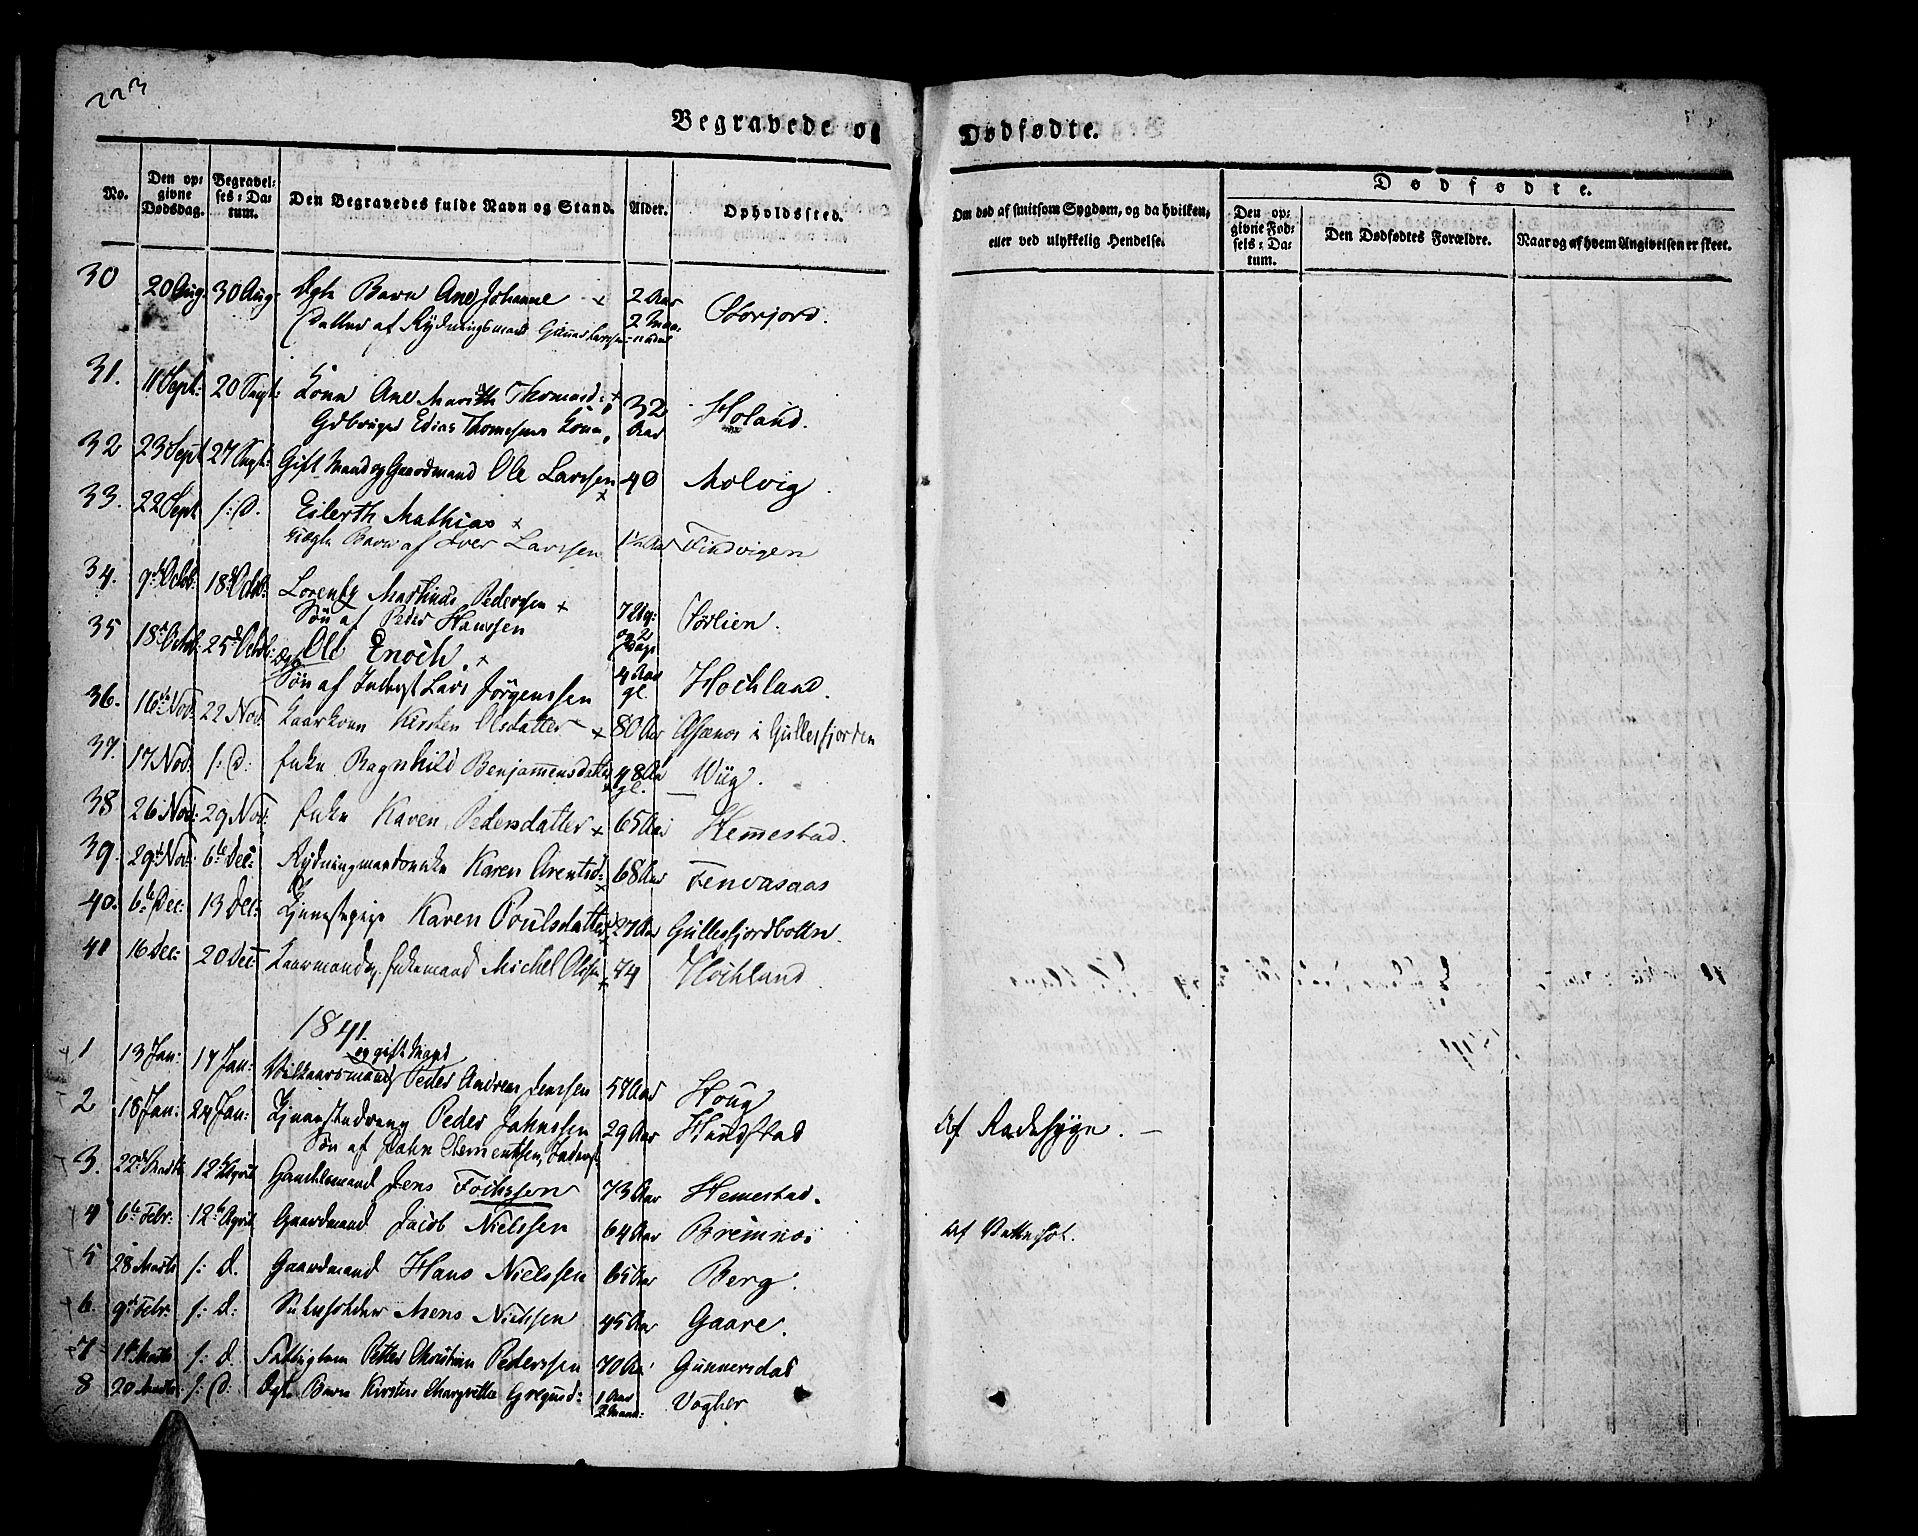 223
Begravede og
Dødfødte.
No. Den opgivne Dødsdag. Begravelses-Datum. Den Begravedes fulde Navn og Stand. Alder. Opholdssted.
Om død af smitsom Sygdom, og da hvilken, eller ved ulykkelig Hendelse.
Dødfødte.
Den opgivne Fødsels-Datum. Den Dødfødtes Forældre. Naar og af hvem Angivelsen er skeet.
30 20 Aug: 30 Aug: Ægte Barn Ane Johanne 2 Aar Storjord.
Datter af Rydningsmand Larsen 2 Maaneder
31. 11 Sept: 20 Sept: Kone Ane Marith Thomasd: 32 Aar Holand.
Edias Thomesens Kone
32 23 Sept 27 Sept: Gift Mand og Gaardmand Ole Larssen 40 Molvig
33. 22 Sept s: D. Eilerth Mathias
Barn af Iver Larssen 1½ Aar Findvigen
34. 9d Octob: 18d Octob: Lorentz Pedersen
Søn af Peder Hanssen 7 Ug: og 2 Dage Sørlien.
35 18d Octob: 25d Octob: Ole Enoch.
Ægte Søn af Lars Jørgenssen 4 Aar gl. Hochland.
36. 16de Nov: 22 Nov: Kaarkone Kirsten Olsdatter 80 Aar i Gullesfjorden
37. 17 Nov: s: D: Enke Ragnhild Benjamensdatter 48 Aar gl. Wiig.
38 26 Nov: 29 Nov: Enke Karen Pedersdatter 65 Aar Hemestad.
39. 29d Nov: 6te Dec: Rydningmandsenke Karen Arentsd: 68 Aar Tenvasaas
40. 6te Dec: 13 Dec: Tjenestepige Karen Poulsdatter 27 Aar Gullesfjordbotten.
41 16 Dec: 20 Dec: Kaarmand og Enkemand Michel Olsen 74 Hochland
1841.
og gift Mand
1 13 Jan: 17 Jan: Vilkaarsmand Peder Andreas Jenssen 57 Aar Houg
2 18 Jan: 24 Jan: Tjenestedreng Peder Jahnssen 29 Aar Hundstad af Radesyge. —
Søn af Jahn Clementssen,
3. 22d Marts 12te April Gaardmand Jens Fochssen 73 Aar Hemestad.
4 6te Febr: 12te April Gaardmand Jacob Nielssen 64 Aar Bremnes af Vattersot.
5 28 Marts s: d. Gaardmand Hans Nielssen 65 Aar Berg.
6 9d Febr: s: d: Mons Nielssen 45 Aar Gaare.
7 1te Marts s: d. Fattiglem Petter Christian Pederssen 70 Aar Gunnersdal
8 20 Marts s: D: Ægte Barn Kirsten Margrethe Gregusd: 1 Aar 2 Maan: Vogher